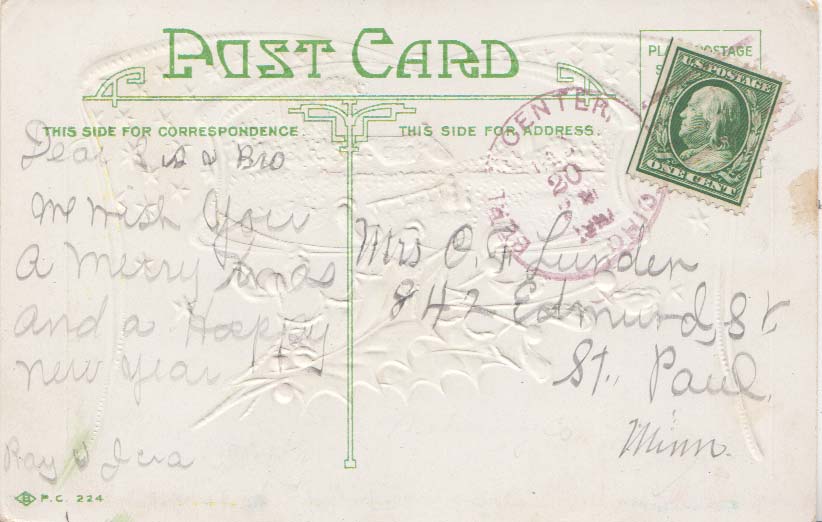 POST CARD
PLACE POSTAGE
THIS SIDE FOR CORRESPONDENCE.
THIS SIDE FOR ADDRESS.
U.S. POSTAGE
ONE CENT
CENTER,
20
Dear Sis & Bro
We wish You
A Merry Xmas
and a Happy
new year
Ray &
Mrs O. F. Lunden
842 Edmund St
St. Paul,
Minn.
B P.C. 224